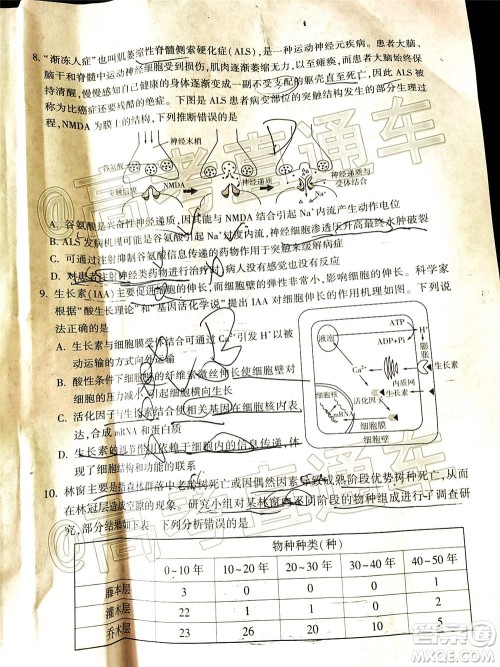 8. “渐冻人症”也叫肌萎缩性脊髓侧索硬化症(ALS)，是一种运动神经元疾病。患者大脑、
脑干和脊髓中运动神经细胞受到损伤，肌肉逐渐萎缩无力，以至瘫痪，而患者大脑始终保
持清醒，慢慢感知自己健康的身体逐渐变成一副不受支配的躯壳直至死亡，因此被
称为是比癌症还要残酷的绝症。下图是ALS患者病变部位的突触结构发生的部分生理
过程，NMDA为膜上的结构。下列推断错误的是
神经末梢
谷氨酸
突触后膜
NMDA
Na⁺
神经递质
神经递质
与受体结合
A. 谷氨酸是兴奋性神经递质，因其能与NMDA结合引起Na⁺内流产生动作电位
B. ALS发病机理可能是谷氨酸引起Na⁺过度内流，神经细胞渗透压升高最终水肿破裂
C. 可通过注射抑制谷氨酸信息传递的药物作用于突触来缓解病症
D. 对患者注射神经类药物进行治疗时，病人没有任何感觉与反应
9. 生长素(IAA)主要促进细胞的伸长，而细胞壁的弹性非常小，影响细胞的伸长。科学家
根据“酸生长理论”和“基因活化学说”提出IAA对细胞伸长的作用机理如图。下列说
法正确的是
A. 生长素与细胞膜受体结合可通过Ca²⁺引发H⁺以主
动运输的方式向外运输
B. 酸性条件下细胞壁的纤维素微丝伸长使细胞壁对
细胞压力减小引起细胞横向生长
C. 活化因子与生长素结合使相关基因在细胞核内表
达，合成mRNA和蛋白质
D. 生长素的调节作用依赖于细胞内的信息传递，体
现了细胞结构和功能的联系
液泡
ATP
ADP+Pi
H⁺
酸胀
Ca²⁺
内质网
生长素
细胞核
活化因子
mRNA
细胞膜
细胞壁
10. 林窗主要是指森林群落中老龄树死亡或因偶然因素导致成熟阶段优势树种死亡，从而
在林冠层造成空隙的现象。研究小组对某林窗内不同阶段的物种组成进行了调查研
究，部分结果如下表。下列分析错误的是
物种种类(种)
0~10年 10~20年 20~30年 30~40年 40~50年
藤本层 3 0 0 0 0
灌木层 22 1 1 1 2
乔木层 23 26 20 10 5
@高考直通车
@高考直通车
答案圈
MXQE.COM